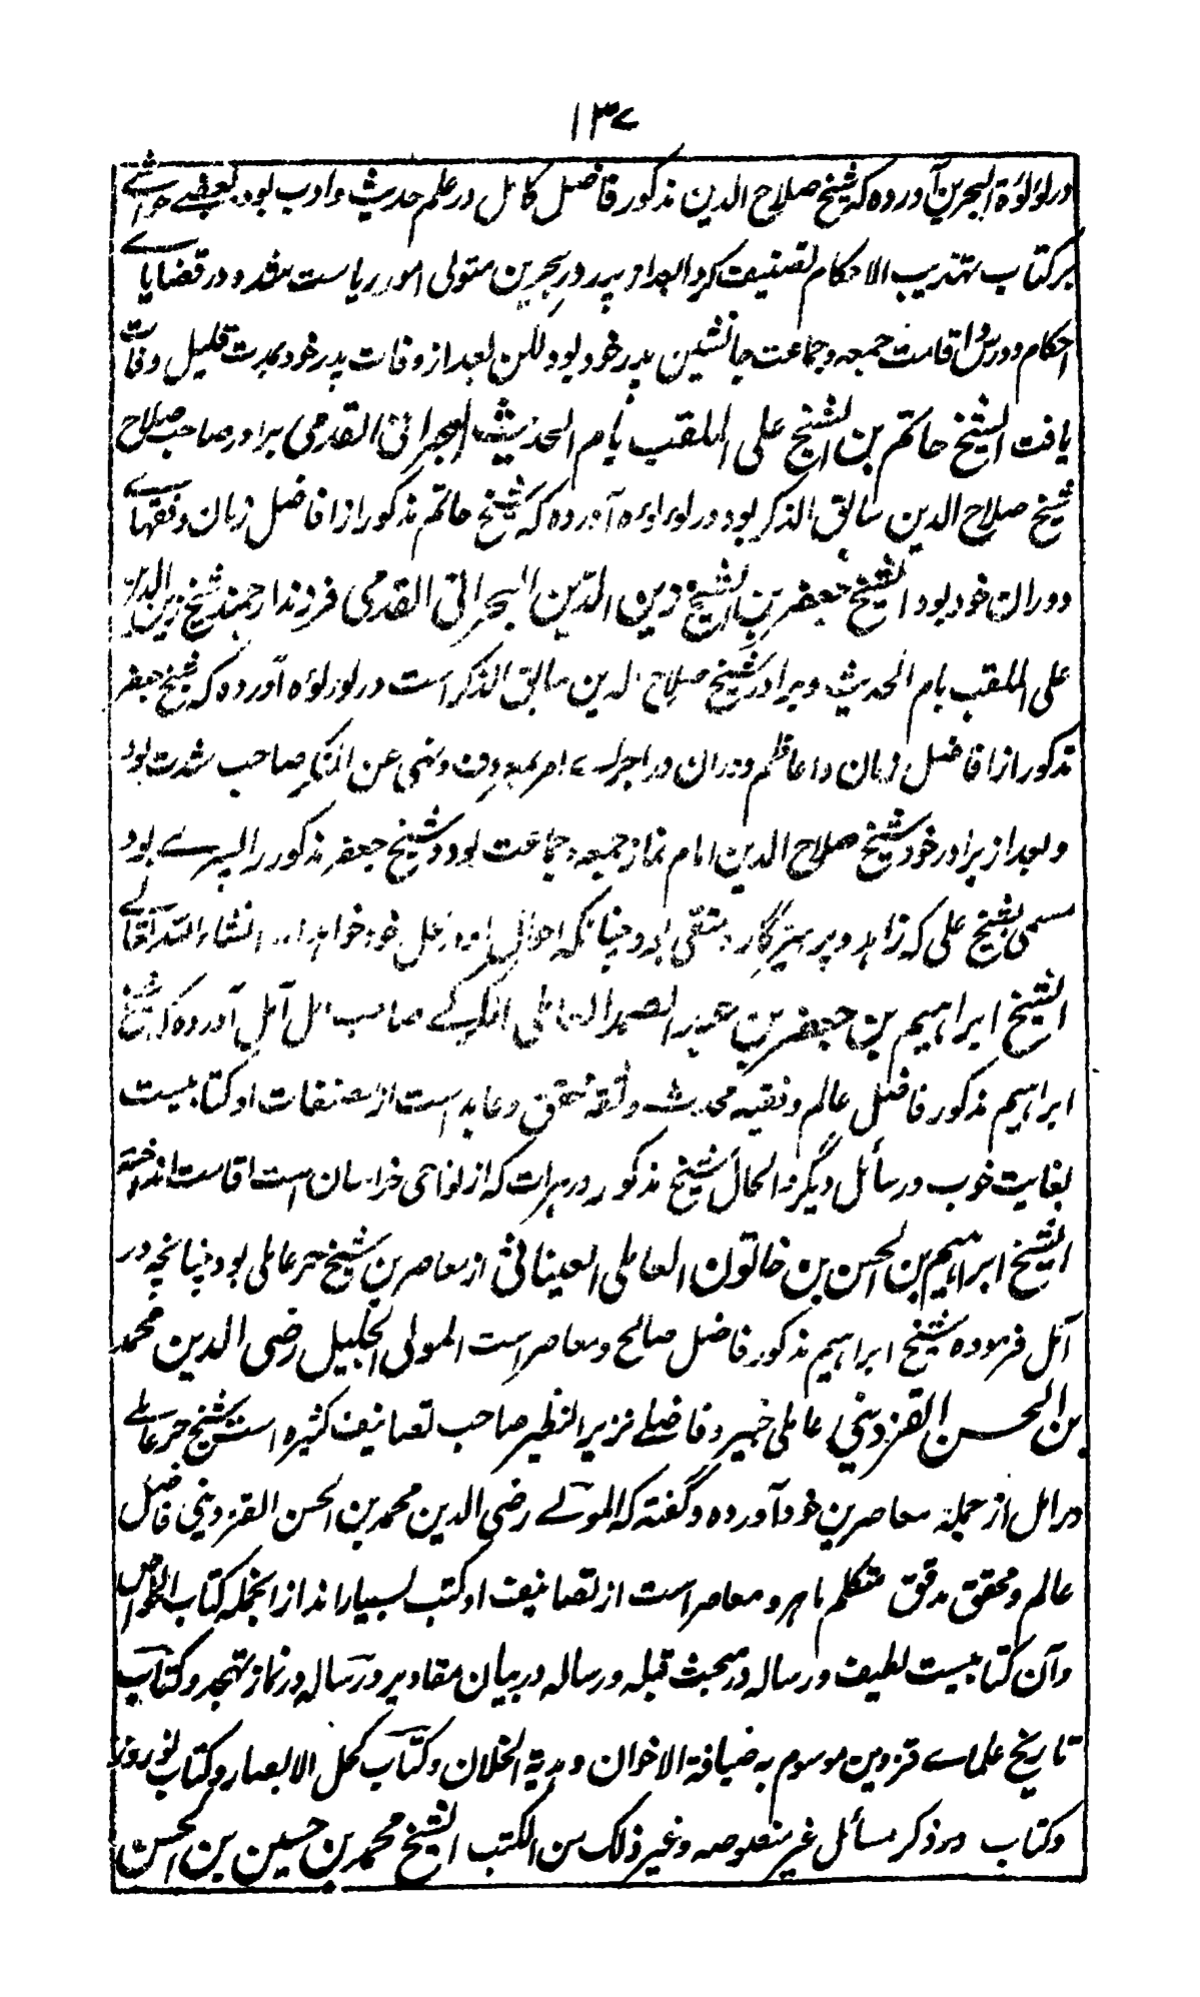 ۱۳۷
در لؤلؤة البحرین آورده که شیخ صلاح الدین مذکور فاضل کامل در علم حدیث و ادب بود بعضے حواشے
بر کتاب تهذیب الاحکام تصنیف کرد و بعد از پدر در بحرین متولی امور ریاست شد و در قضایاے
احکام و درس و اقامت جمعه و جماعت جانشین پدر خود بود لکن بعد از وفات پدر خود بمدت قلیل وفات
یافت الشیخ حاتم بن الشیخ علی الملقب بام الحدیث البحرانی القدمی برادر صاحب صلاح
شیخ صلاح الدین سابق الذکر بود در لؤلؤه آورده که شیخ حاتم مذکور از افاضل زمان و فقهاے
دوران خود بود الشیخ جعفر بن الشیخ زین الدین البحرانی القدمی فرزند ارجمند شیخ زین الدین
علی الملقب بام الحدیث و برادر شیخ صلاح الدین سابق الذکر است در لؤلؤه آورده که شیخ جعفر
مذکور از افاضل زمان و اعاظم دوران در اجراے امر بمعروف و نهی عن المنکر صاحب شدت بود
و بعد از برادر خود شیخ صلاح الدین امام نماز جمعه و جماعت بود و شیخ جعفر مذکور را پسرے بود
مسمی بشیخ علی که زاهد و پرهیزگار و متقی بود چنانکه احوال او در محل خود خواهد آمد انشاء الله تعالے
الشیخ ابراهیم بن جعفر بن عبد الصمد العاملی الکرکے صاحب امل آمل آورده که شیخ
ابراهیم مذکور فاضل عالم و فقیه محدث و ثقه محقق و عابد است از مصنفات او کتابیست
بغایت خوب و رسائل دیگر و الحال شیخ مذکور در هرات که از نواحی خراسان است اقامت انداخته
الشیخ ابراهیم بن الحسن بن خاتون العاملی العیناثی از معاصرین شیخ حر عاملی بود چنانچه در
امل فرموده شیخ ابراهیم مذکور فاضل صالح و معاصر است المولی الجلیل رضی الدین محمد
بن الحسن القزوینی عاملی خبیر و فاضلے عزیز النظیر صاحب تصانیف کثیره است شیخ حر عاملے
در امل از جمله معاصرین خود آورده و گفته که المولے رضی الدین محمد بن الحسن القزوینی فاضل
عالم و محقق مدقق متکلم ماهر و معاصر است از تصانیف او کتب بسیار اند از انجمله کتاب لسان الخواص
و آن کتابیست لطیف و رساله در مبحث قبله و رساله در بیان مقادیر و رساله در نماز تهجد و کتاب
تاریخ علماے قزوین موسوم به ضیافة الاخوان و هدیة الخلان و کتاب کحل الابصار و کتاب نوروز
و کتاب در ذکر مسائل غیر منصوصه و غیر ذلک من الکتب الشیخ محمد بن حسین بن الحسن